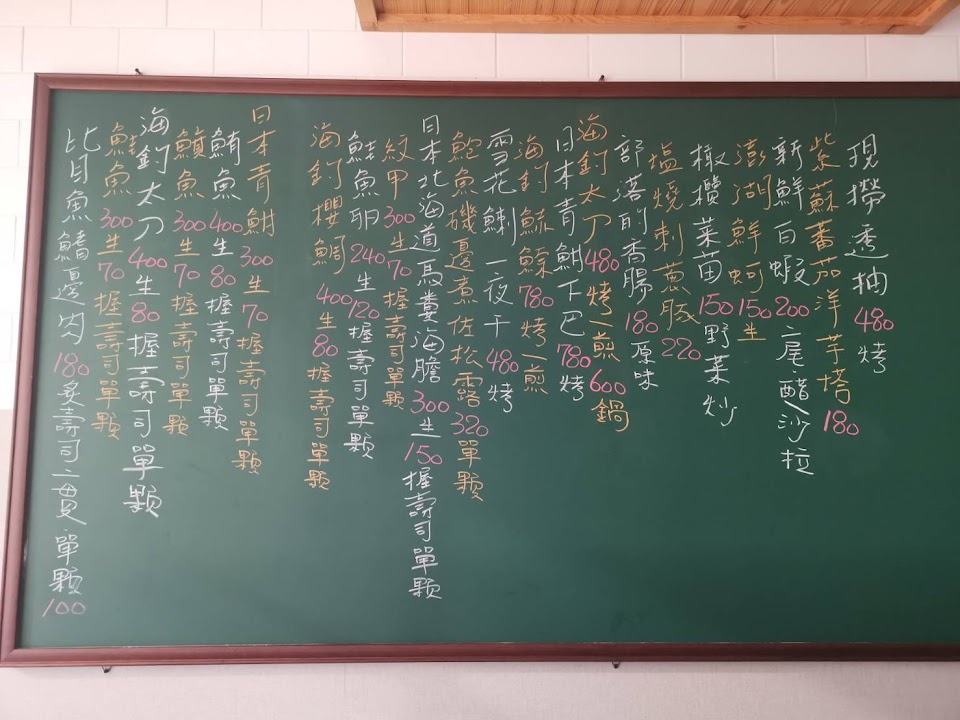 現撈透抽480烤
紫蘇蕃茄洋芋塔180
新鮮白蝦200二尾醋沙拉
澎湖鮮蚵150生
橄欖菜苗150野菜炒
塩燒刺蔥豚220
部落前香腸180原味
海釣太刀480烤一煎600鍋
日本青魽下巴780烤
海釣鯨鯨780烤一煎
雪花鯏一夜干480烤
鮑魚磯邊煮佐松露320單顆
日本北海道馬糞海膽300生150握壽司單顆
紋甲300生70握壽司單顆
鮭魚卵240生120握壽司單顆
海釣櫻鯛400生80握壽司單顆
日本青魽300生70握壽司單顆
鮪魚400生80握壽司單顆
旗魚300生70握壽司單顆
海釣太刀400生80握壽司單顆
鮭魚300生70握壽司單顆
比目魚鰭邊肉180炙壽司二貫單顆100